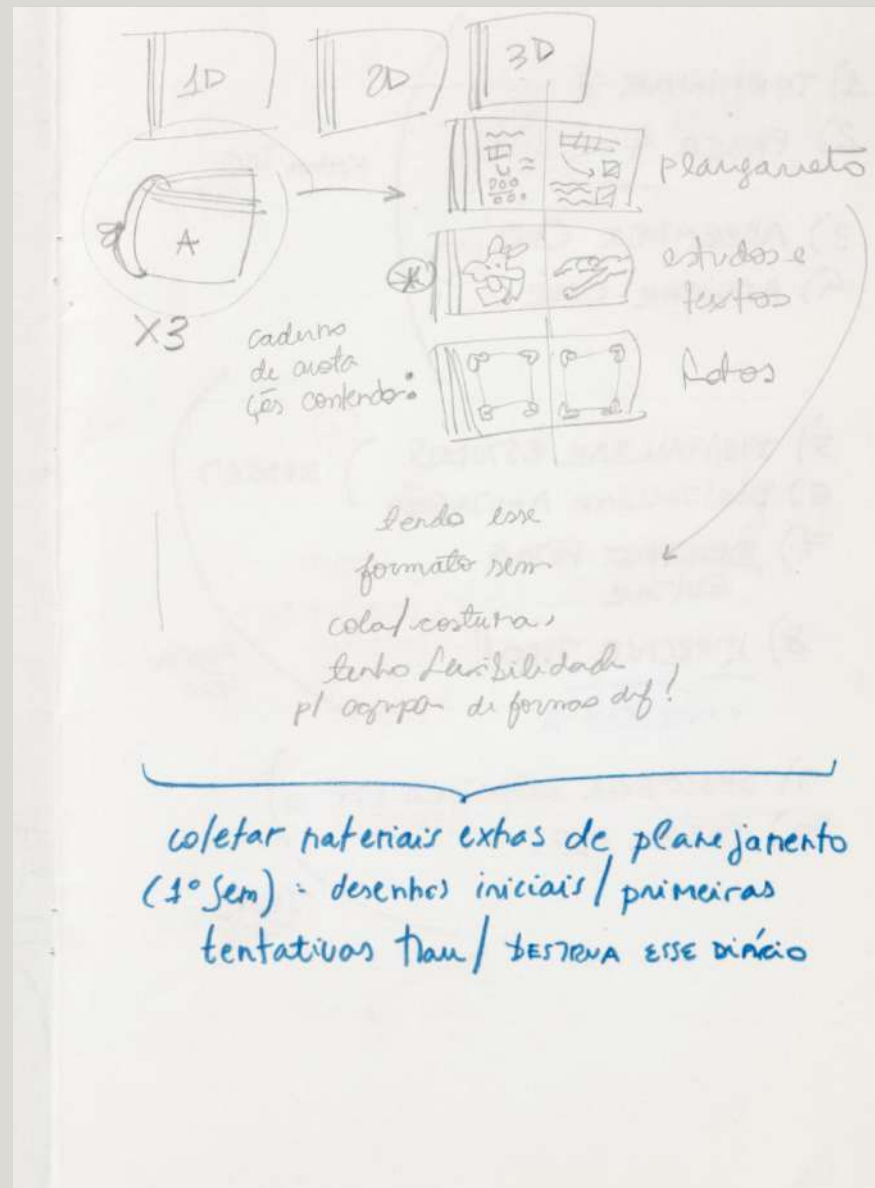 1D 2D 3D
planejamento
A
estudos e
textos
X3
caderno
de anota
ções contendo:
fotos
tendo esse
formato sem
cola/costura,
tenho flexibilidade
p/ agrupar de formas dif!
coletar materiais extras de planejamento
(1º Sem) - desenhos iniciais / primeiras
tentativas / DESTRUA ESSE DIÁRIO